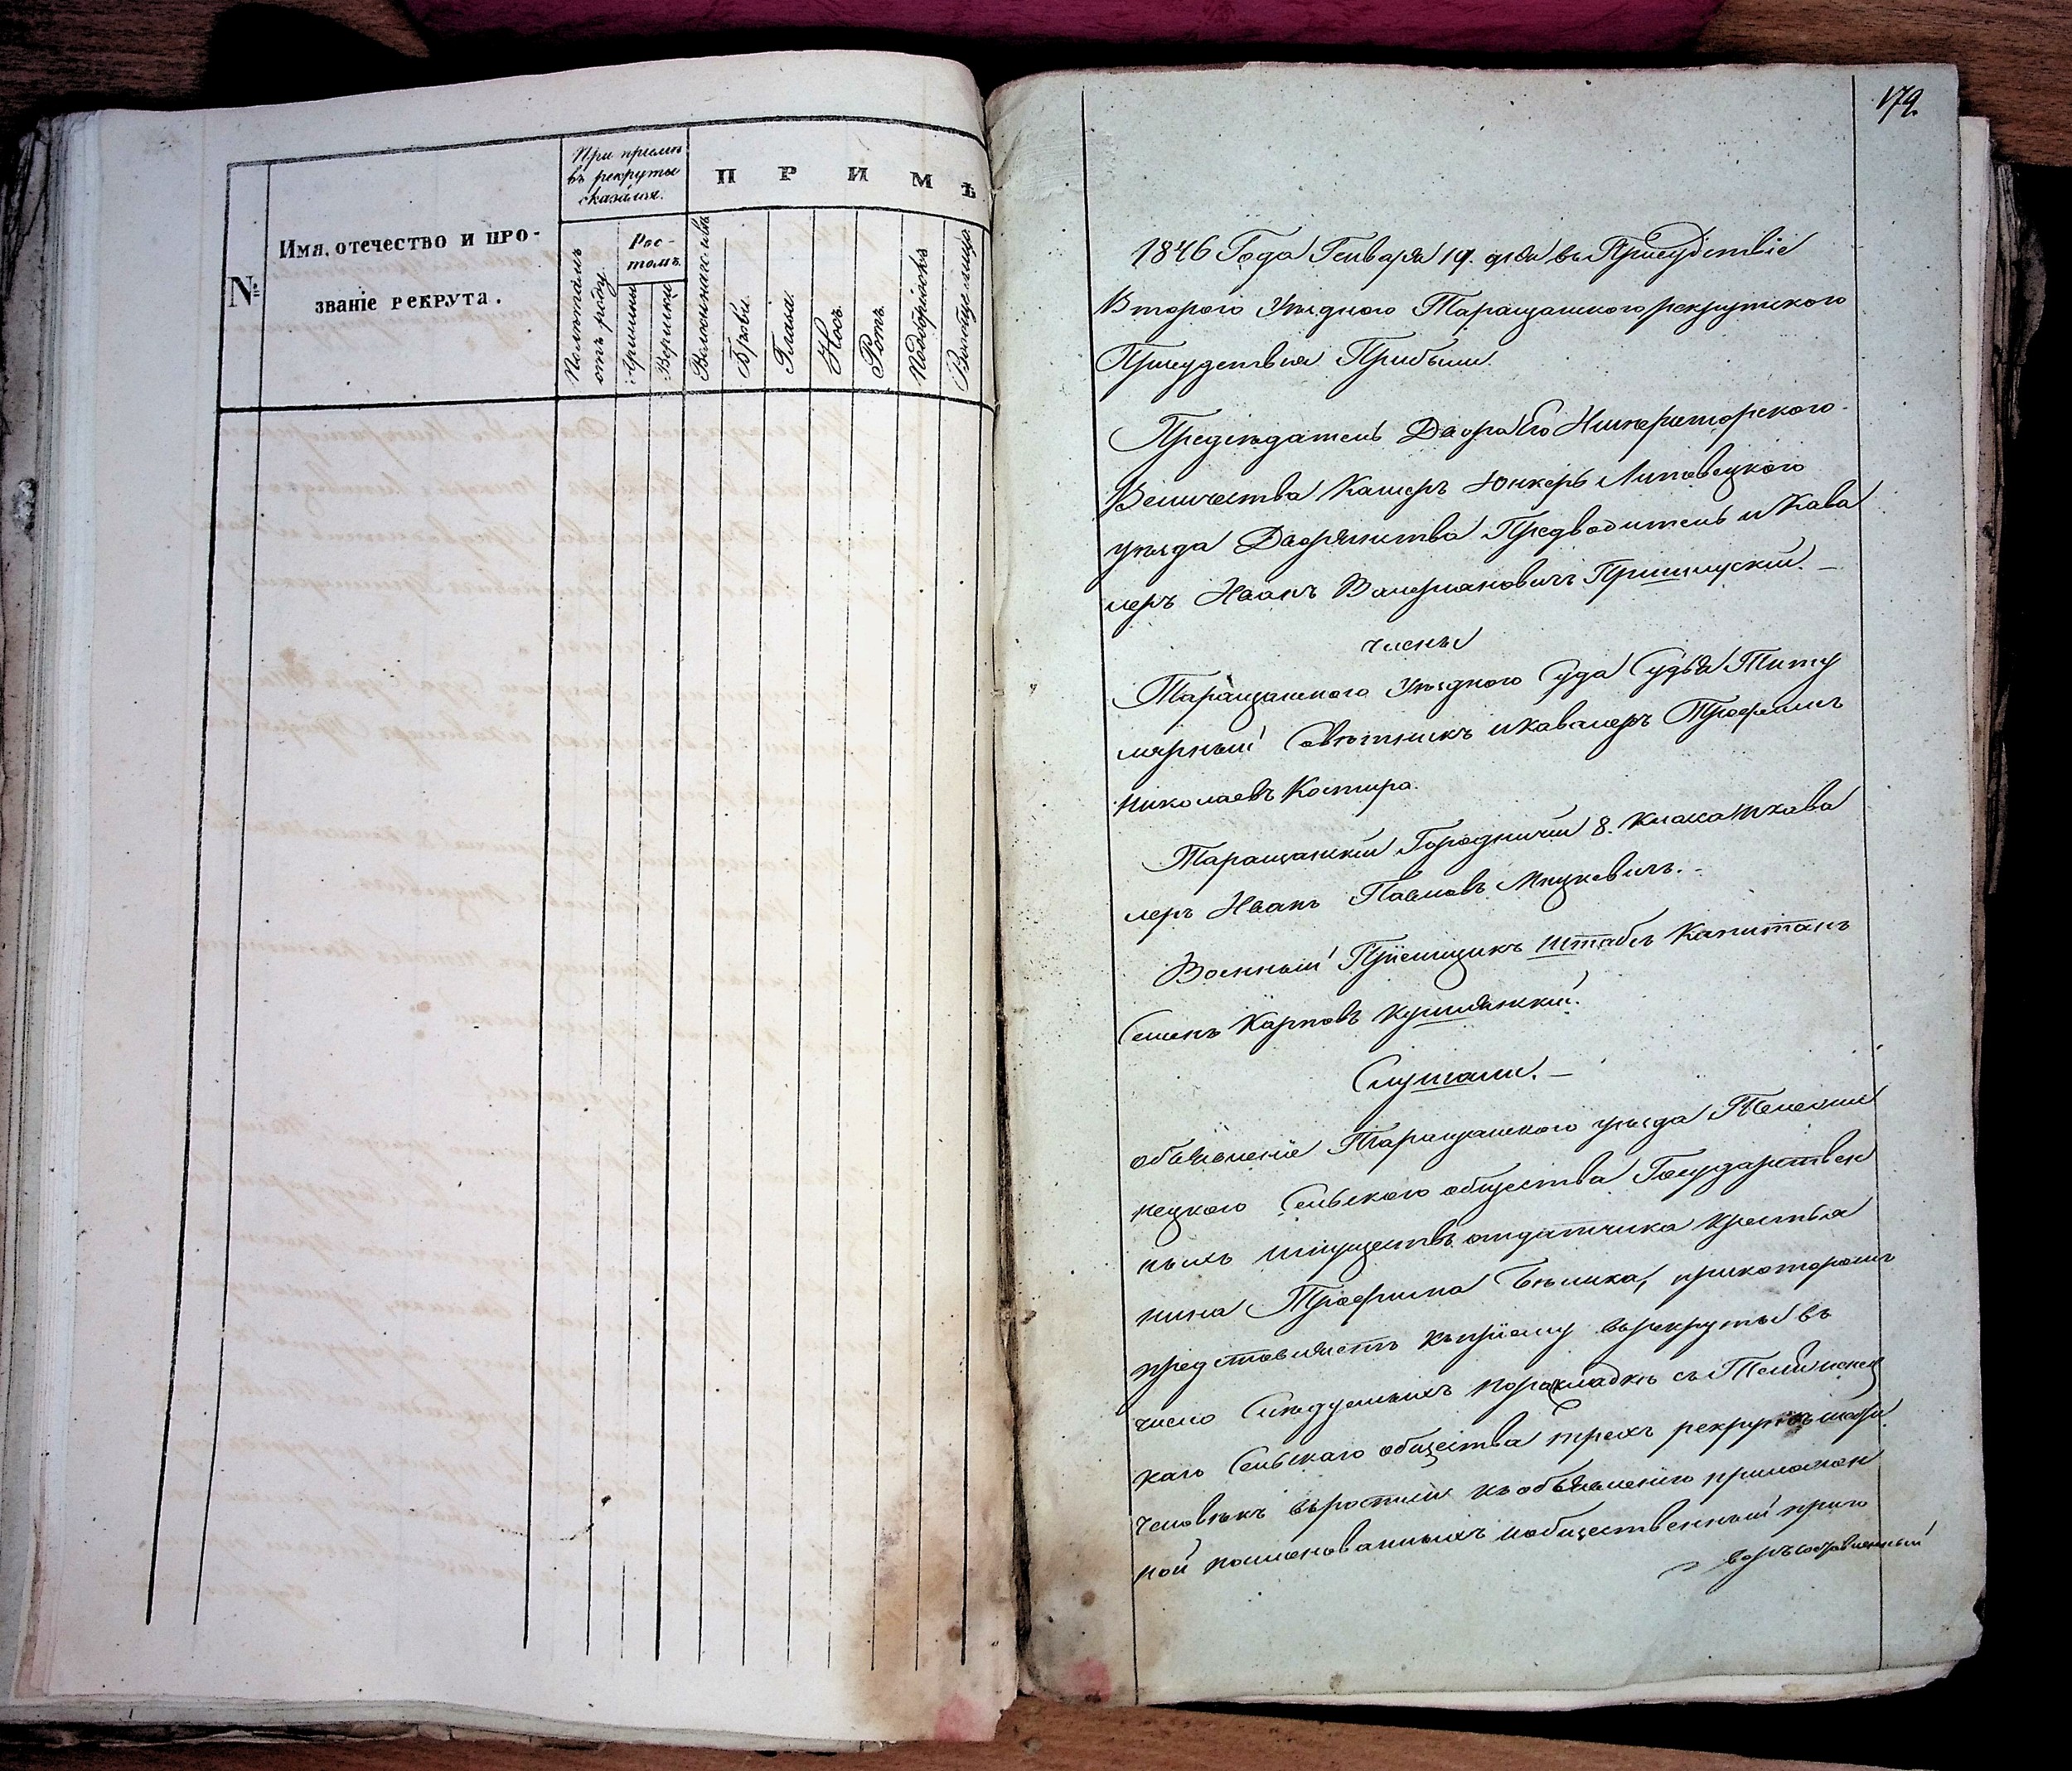 №
Имя, отечество и про-
званіе рекрута.
При приемѣ
въ рекруты
сказался.
Полѣтамъ
отъ роду.
Рос-
томъ.
Аршины
Вершки
П Р И М Ѣ
Брови.
Глаза.
Носъ.
Ротъ.
Подбородокъ
Вообще лицо.
179.
1846 Года Генваря 19. дня въ Присудствіе
Втораго Уѣзднаго Таращанскаго рекрутскаго
Присудствія Прибыли.
Предсѣдатель Двора Его Императорского
Величества Камеръ Юнкеръ Липовецкого
уѣзда Дворянства Предводитель и Кава
леръ Иванъ Валеріановичъ
члены
Таращанского Уѣздного Суда Судья Титу
лярный Совѣтникъ и кавалеръ Трофимъ
Николаевъ Костыра.
Таращанскій Городничій 8. класа и кава
леръ Иванъ Павловъ Мицкевичъ.
Военный Пріемщикъ штабсъ Капитанъ
Семенъ Карповъ
Слушали.
объявленіе Таращанского уѣзда
нецкого Сельского общества Государствен
ныхъ имуществъ отдатчика крестья
нина Трофима Бѣлика, прикоторомъ
представляетъ къ пріему въ рекруты въ
число Слѣдуемыхъ пораскладкѣ съ
каго Сельскаго общества трехъ рекрутъ
человѣкъ въ росписи къ объявленію приложен
ной поименованныхъ и общественный приго
воръ составленный